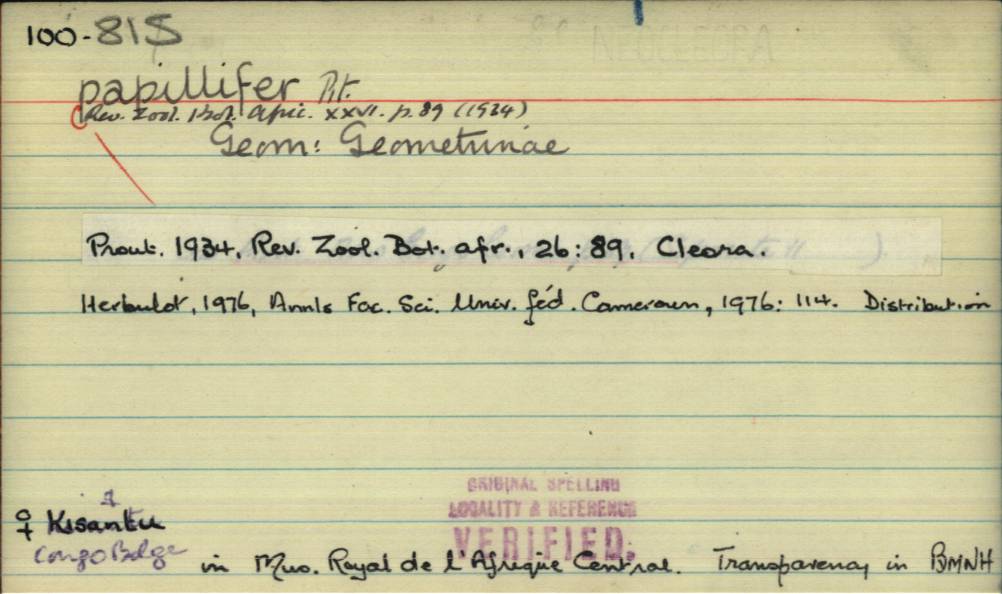 100-815
papillifer Prt.
(Rev. Zool. Bot. Afric. XXVI. p. 89 (1934)
Geom: Geometrinae
Prout. 1934, Rev. Zool. Bot. afr., 26: 89. Cleora.
Herbulot, 1976, Annls Fac. Sci. Univ. féd. Cameroun, 1976: 114. Distribution
ORIGINAL SPELLING
LOCALITY & REFERENCE
VERIFIED.
♀ Kisantu
Congo Belge
in Mus. Royal de l'Afrique Central. Transparency in BMNH